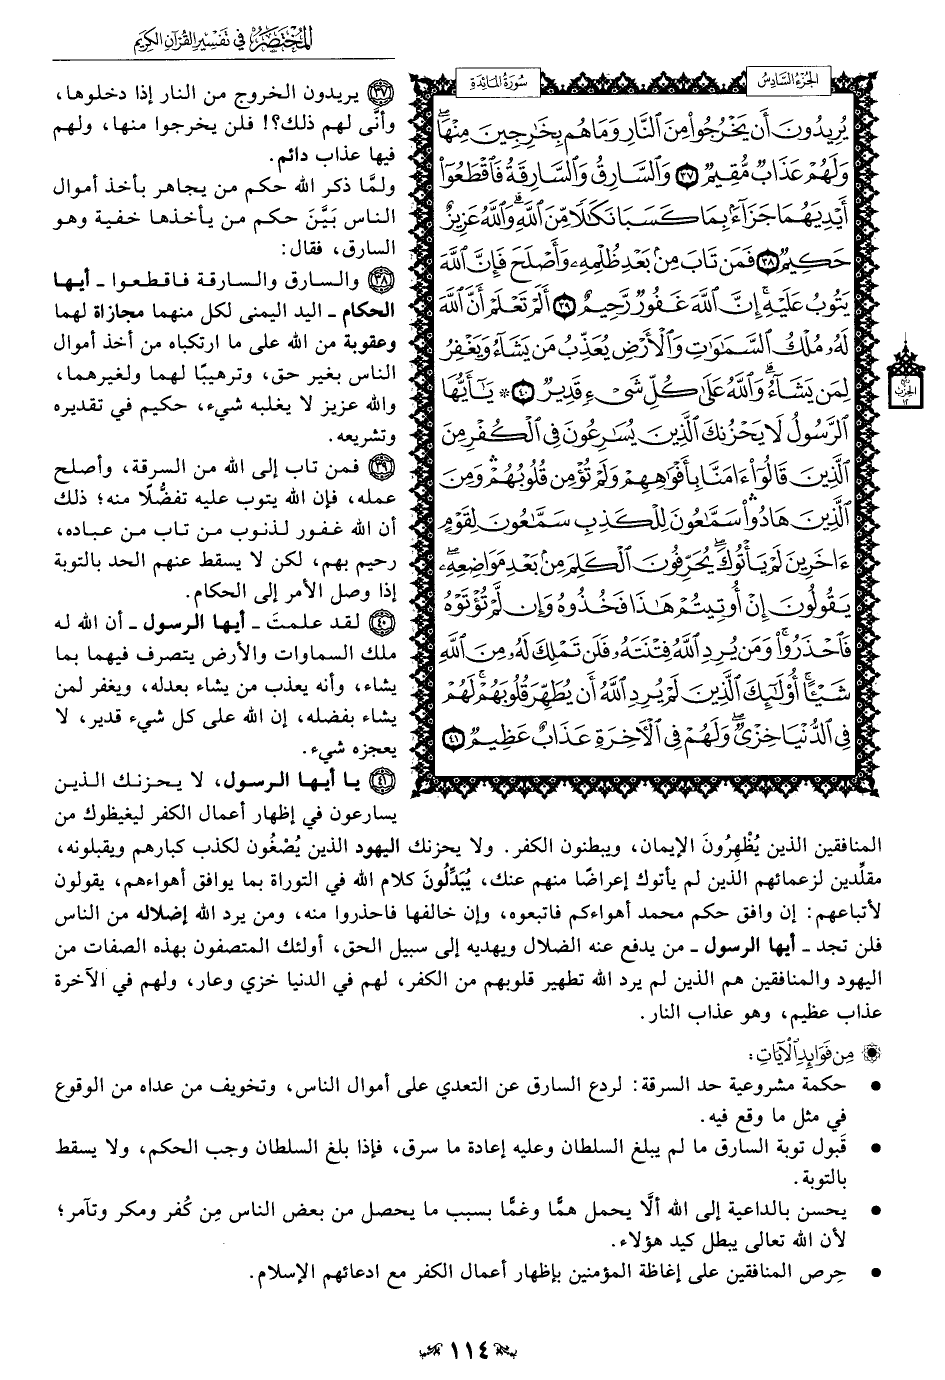 المختصر في تفسير القرآن الكريم
الجزء السادس
سورة المائدة
يُرِيدُونَ أَن يَخْرُجُوا۟ مِنَ ٱلنَّارِ وَمَا هُم بِخَٰرِجِينَ مِنْهَاۖ
وَلَهُمْ عَذَابٌ مُّقِيمٌ ٣٧ وَٱلسَّارِقُ وَٱلسَّارِقَةُ فَٱقْطَعُوٓا۟
أَيْدِيَهُمَا جَزَآءًۢ بِمَا كَسَبَا نَكَٰلًا مِّنَ ٱللَّهِۗ وَٱللَّهُ عَزِيزٌ
حَكِيمٌ ٣٨ فَمَن تَابَ مِنۢ بَعْدِ ظُلْمِهِۦ وَأَصْلَحَ فَإِنَّ ٱللَّهَ
يَتُوبُ عَلَيْهِۚ إِنَّ ٱللَّهَ غَفُورٌ رَّحِيمٌ ٣٩ أَلَمْ تَعْلَمْ أَنَّ ٱللَّهَ
لَهُۥ مُلْكُ ٱلسَّمَٰوَٰتِ وَٱلْأَرْضِ يُعَذِّبُ مَن يَشَآءُ وَيَغْفِرُ
لِمَن يَشَآءُۗ وَٱللَّهُ عَلَىٰ كُلِّ شَىْءٍ قَدِيرٌ ٤٠ ۞ يَٰٓأَيُّهَا
ٱلرَّسُولُ لَا يَحْزُنكَ ٱلَّذِينَ يُسَٰرِعُونَ فِى ٱلْكُفْرِ مِنَ
ٱلَّذِينَ قَالُوٓا۟ ءَامَنَّا بِأَفْوَٰهِهِمْ وَلَمْ تُؤْمِن قُلُوبُهُمْۛ وَمِنَ
ٱلَّذِينَ هَادُوا۟ۛ سَمَّٰعُونَ لِلْكَذِبِ سَمَّٰعُونَ لِقَوْمٍ
ءَاخَرِينَ لَمْ يَأْتُوكَۖ يُحَرِّفُونَ ٱلْكَلِمَ مِنۢ بَعْدِ مَوَاضِعِهِۦۖ
يَقُولُونَ إِنْ أُوتِيتُمْ هَٰذَا فَخُذُوهُ وَإِن لَّمْ تُؤْتَوْهُ
فَٱحْذَرُوا۟ۚ وَمَن يُرِدِ ٱللَّهُ فِتْنَتَهُۥ فَلَن تَمْلِكَ لَهُۥ مِنَ ٱللَّهِ
شَيْـًٔاۚ أُو۟لَٰٓئِكَ ٱلَّذِينَ لَمْ يُرِدِ ٱللَّهُ أَن يُطَهِّرَ قُلُوبَهُمْۚ لَهُمْ
فِى ٱلدُّنْيَا خِزْىٌۖ وَلَهُمْ فِى ٱلْءَاخِرَةِ عَذَابٌ عَظِيمٌ ٤١
٣٧ يريدون الخروج من النار إذا دخلوها،
وأنَّى لهم ذلك؟! فلن يخرجوا منها، ولهم
فيها عذاب دائم.
ولمَّا ذكر الله حكم من يجاهر بأخذ أموال
الناس بَيَّنَ حكم من يأخذها خفية وهو
السارق، فقال:
٣٨ والسارق والسارقة فاقطعوا ـ أيها
الحكام ـ اليد اليمنى لكل منهما مجازاة لهما
وعقوبة من الله على ما ارتكباه من أخذ أموال
الناس بغير حق، وترهيبًا لهما ولغيرهما،
والله عزيز لا يغلبه شيء، حكيم في تقديره
وتشريعه.
٣٩ فمن تاب إلى الله من السرقة، وأصلح
عمله، فإن الله يتوب عليه تفضُّلًا منه؛ ذلك
أن الله غفور لذنوب من تاب من عباده،
رحيم بهم، لكن لا يسقط عنهم الحد بالتوبة
إذا وصل الأمر إلى الحكام.
٤٠ لقد علمتَ ـ أيها الرسول ـ أن الله له
ملك السماوات والأرض يتصرف فيهما بما
يشاء، وأنه يعذب من يشاء بعدله، ويغفر لمن
يشاء بفضله، إن الله على كل شيء قدير، لا
يعجزه شيء.
٤١ يا أيها الرسول، لا يحزنك الذين
يسارعون في إظهار أعمال الكفر ليغيظوك من
المنافقين الذين يُظْهِرُونَ الإيمان، ويبطنون الكفر. ولا يحزنك اليهود الذين يُصْغُون لكذب كبارهم ويقبلونه،
مقلِّدين لزعمائهم الذين لم يأتوك إعراضًا منهم عنك، يُبَدِّلُونَ كلام الله في التوراة بما يوافق أهواءهم، يقولون
لأتباعهم: إن وافق حكم محمد أهواءكم فاتبعوه، وإن خالفها فاحذروا منه، ومن يرد الله إضلاله من الناس
فلن تجد ـ أيها الرسول ـ من يدفع عنه الضلال ويهديه إلى سبيل الحق، أولئك المتصفون بهذه الصفات من
اليهود والمنافقين هم الذين لم يرد الله تطهير قلوبهم من الكفر، لهم في الدنيا خزي وعار، ولهم في الآخرة
عذاب عظيم، وهو عذاب النار.
من فوائد الآيات:
• حكمة مشروعية حد السرقة: لردع السارق عن التعدي على أموال الناس، وتخويف من عداه من الوقوع
في مثل ما وقع فيه.
• قَبول توبة السارق ما لم يبلغ السلطان وعليه إعادة ما سرق، فإذا بلغ السلطان وجب الحكم، ولا يسقط
بالتوبة.
• يحسن بالداعية إلى الله ألَّا يحمل همًّا وغمًّا بسبب ما يحصل من بعض الناس مِن كُفر ومكر وتآمر؛
لأن الله تعالى يبطل كيد هؤلاء.
• حِرص المنافقين على إغاظة المؤمنين بإظهار أعمال الكفر مع ادعائهم الإسلام.
١١٤